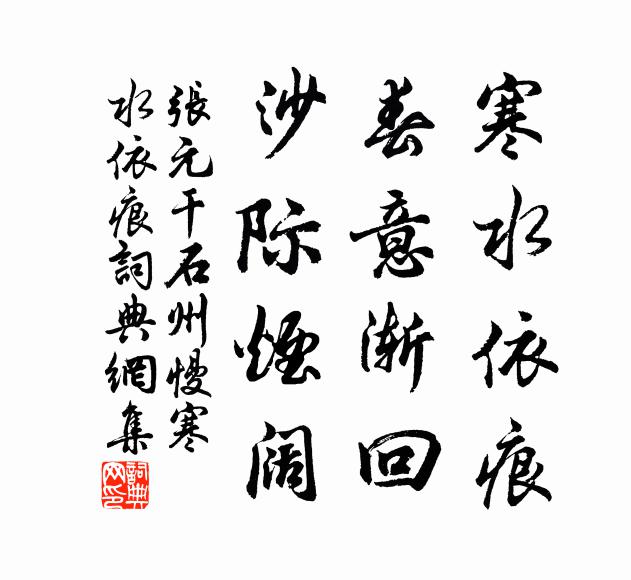 寒水依痕
春意渐回
沙际煙阔
張元干石州慢寒
水依痕詞典網集
詞典网印